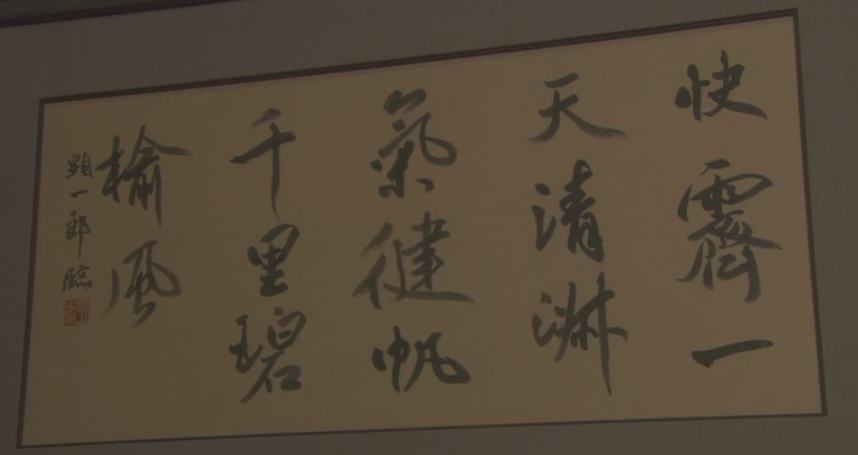 快霽一
天清淑
氣健帆
千里碧
榆風
顕一郎臨